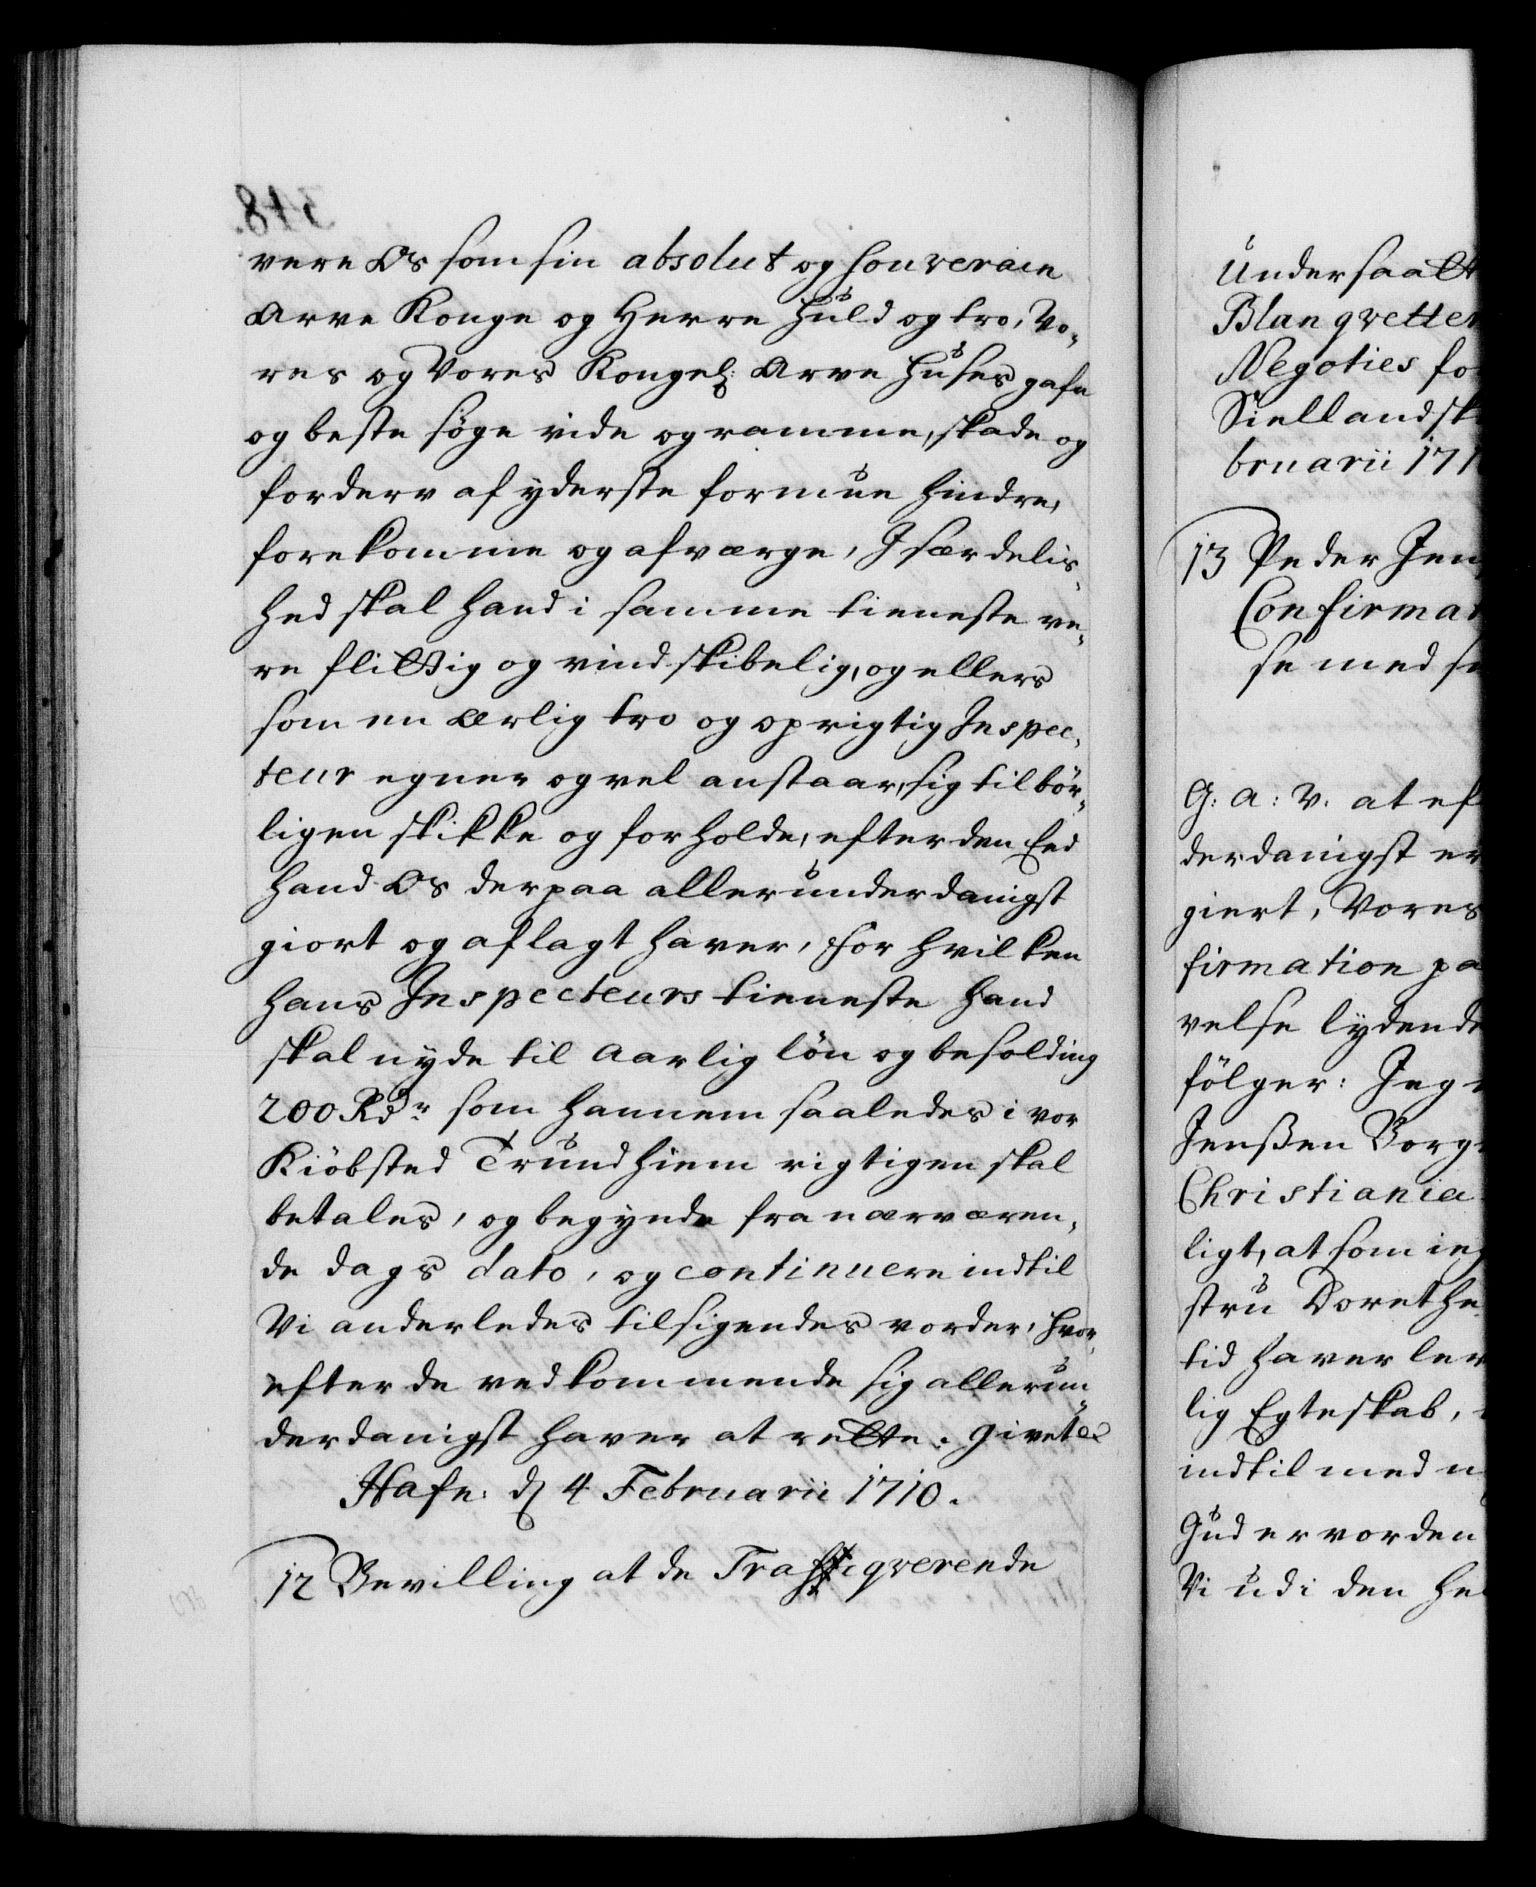 vere Os som sin absolut og souverain
Arve Konge og Herre huld og tro, Vo,
res og Vores Kongel: Arve Huses gafn
og beste söge vide og ramme, skade og
forderv af yderste formue hindre,
forekomme og afværge, Isærdelis,
hed skal hand i samme tieneste ve,
re flittig og vindskibelig, og ellers
som en ærlig tro og oprigtig Inspec,
teur egner og vel anstaar, sig tilbör,
ligen skikke og forholde, efter den Eed
hand Os derpaa allerunderdanigst
giort og aflagt haver, for hvilken
hans Inspecteurs tieneste hand
skal nyde til Aarlig lön og besolding
200 Rdr som hannem saaledes i vor
Kiöbsted Trundhiem rigtigen skal
betales, og begynde fra nærværen,
de dags dato, og continuere indtil
Vi anderledes tilsigendes vorder, hvor,
efter de vedkommende sig allerun,
derdanigst haver at rette. Givet &c
Hafn: d 4 Februarii 1710.
12 Bevilling at de Traffiqverende
Undersaatt
Blanqvetter
Negoties fo
Siellandsk
bruarii 171
13 Peder Jen
Confirmat
se med s
G: A: V: at ef
derdanigst er
giert, Vores
firmation pa
velse lydend
fölger: Jeg
Jenßen Borg
Christiania
ligt, at som ieg
stru Dorethe
tid haver lev
lig Egteskab,
indtil med
Gud er vorden
Vi udi den he